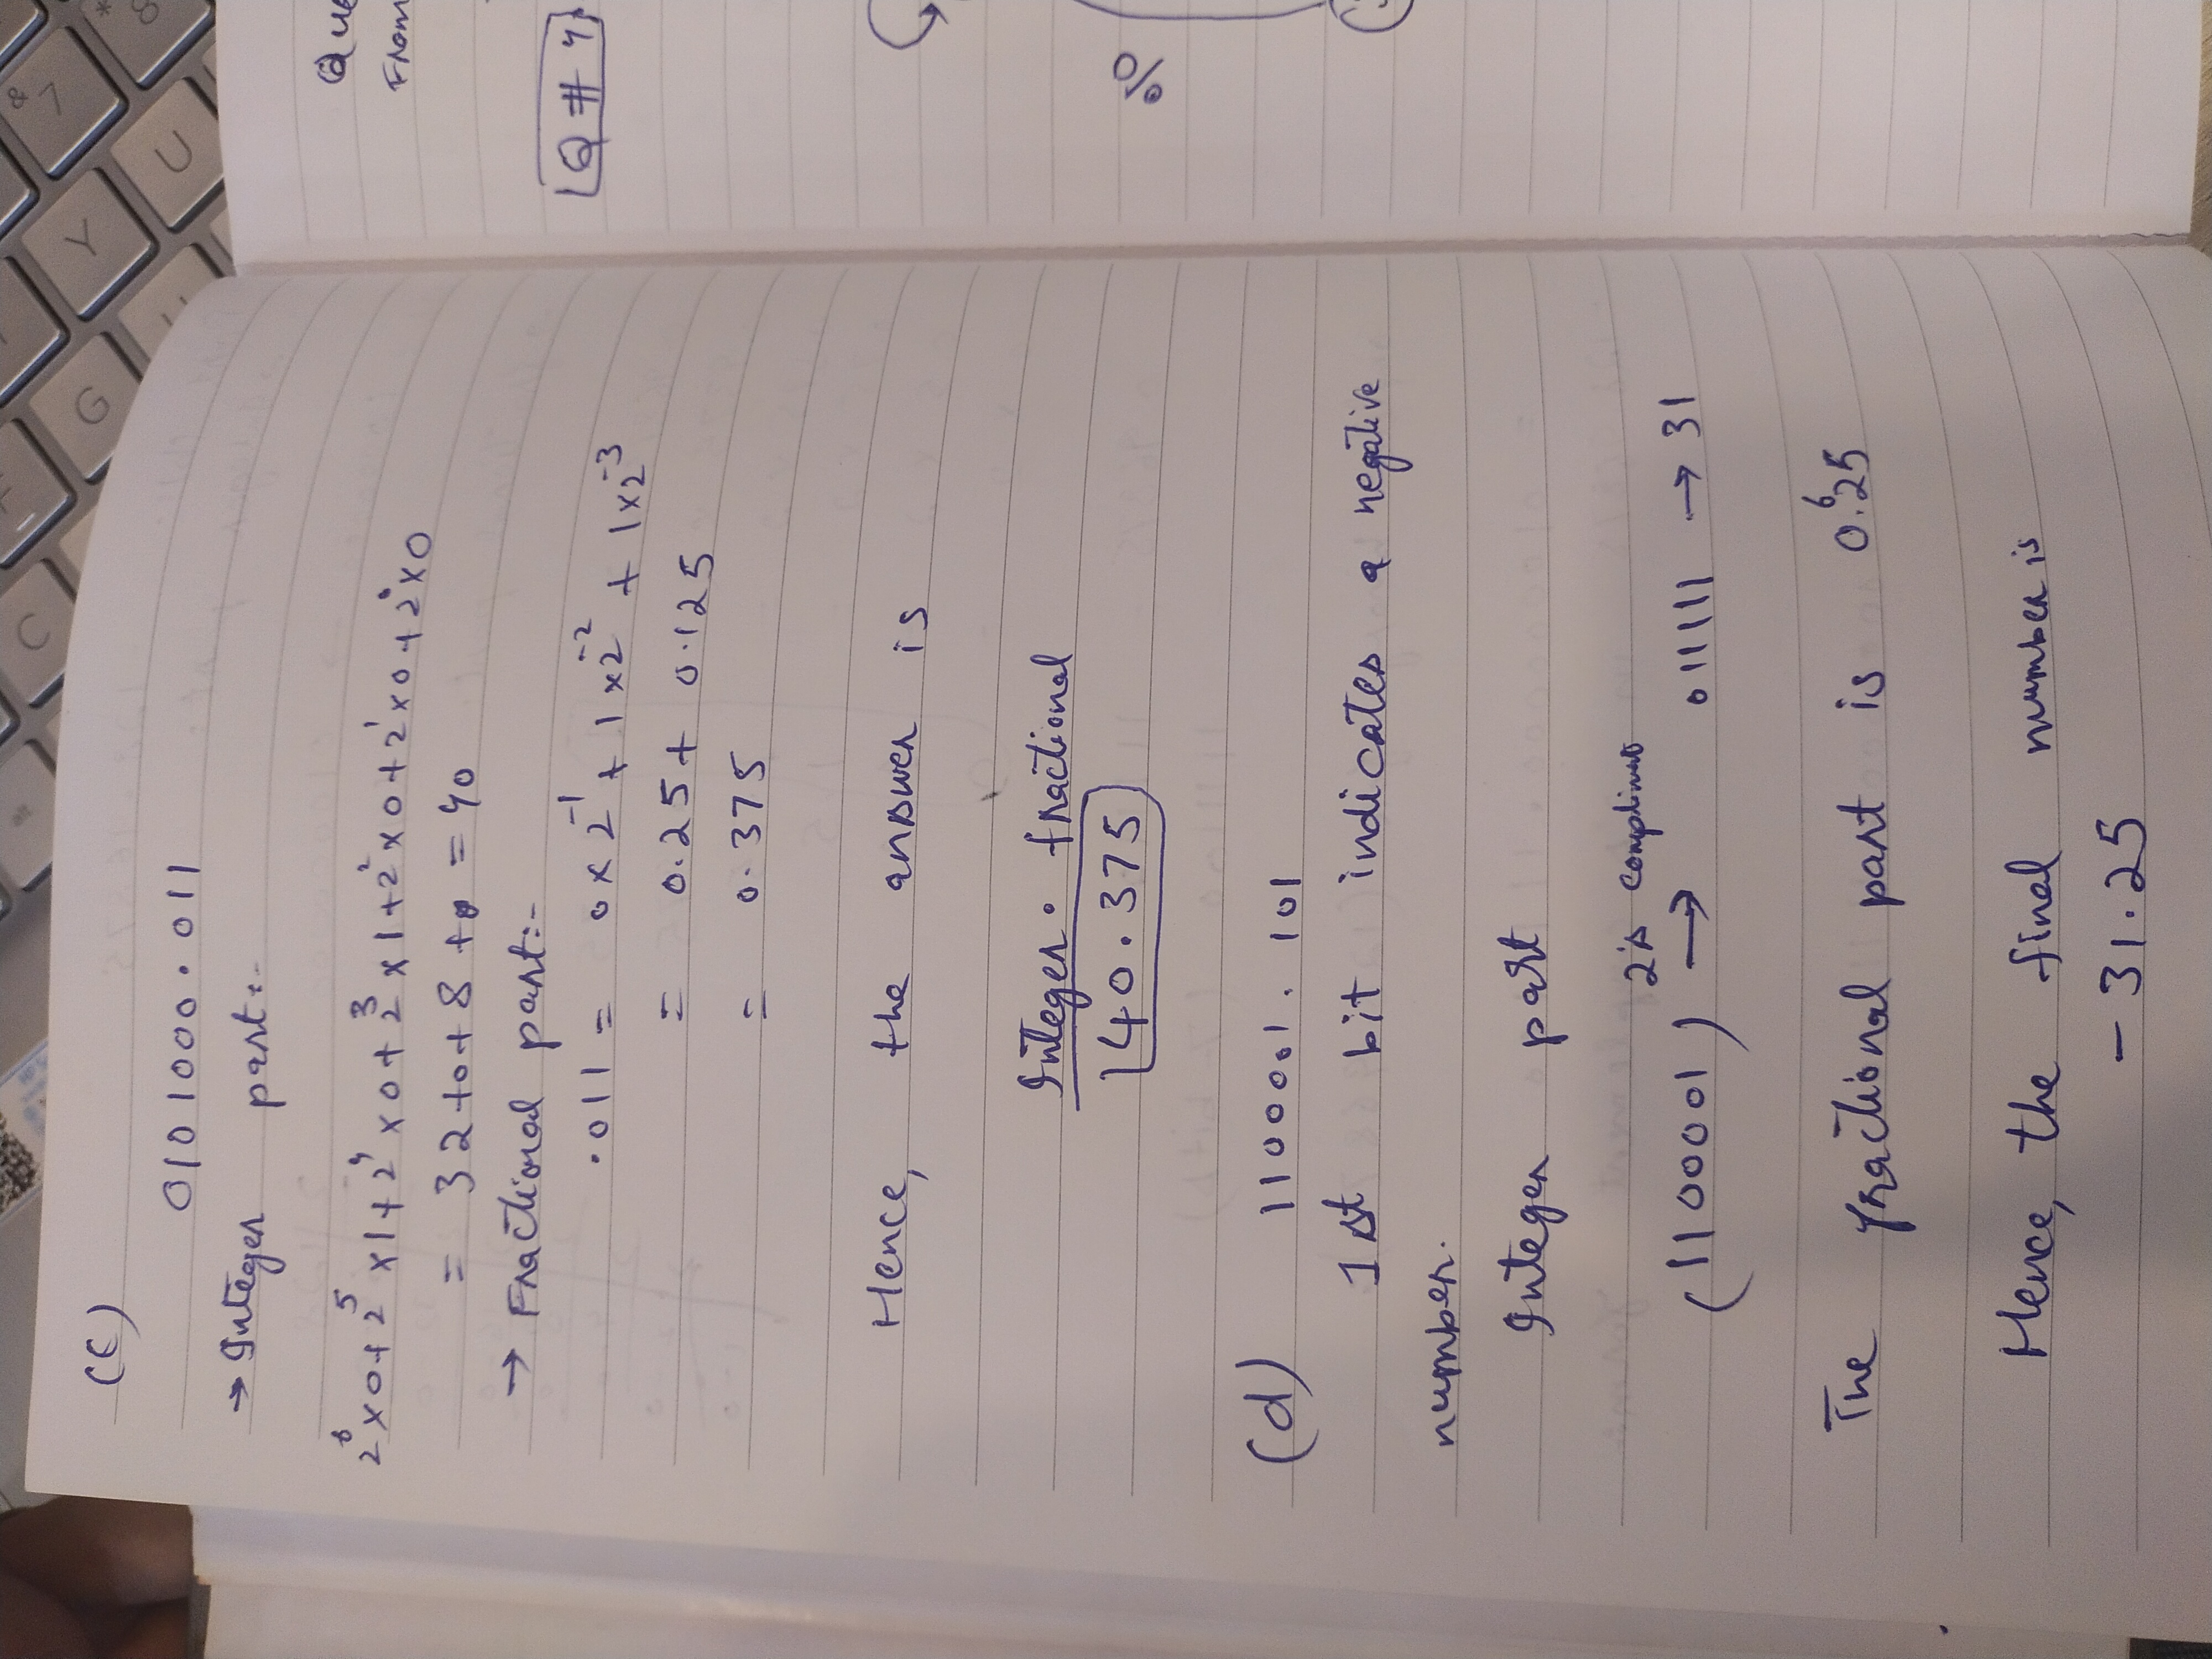 (c)
0101000.011
→ Integer part:-
2⁶×0+2⁵×1+2⁴×0+2³×1+2²×0+2¹×0+2⁰×0
= 32+0+8+0 = 40
→ Fractional part:-
.011 = 0×2⁻¹ + 1×2⁻² + 1×2⁻³
= 0.25+ 0.125
= 0.375
Hence, the answer is
Integer . fractional
40.375
(d) 1100001.101
1st bit indicates a negative
number.
Integer part
2's compliment
(1100001) → 011111 → 31
The fractional part is 0.625
Hence, the final number is
-31.25
Que
From
Q # 4
%
C
F
G
Y
U
&
7
*
8